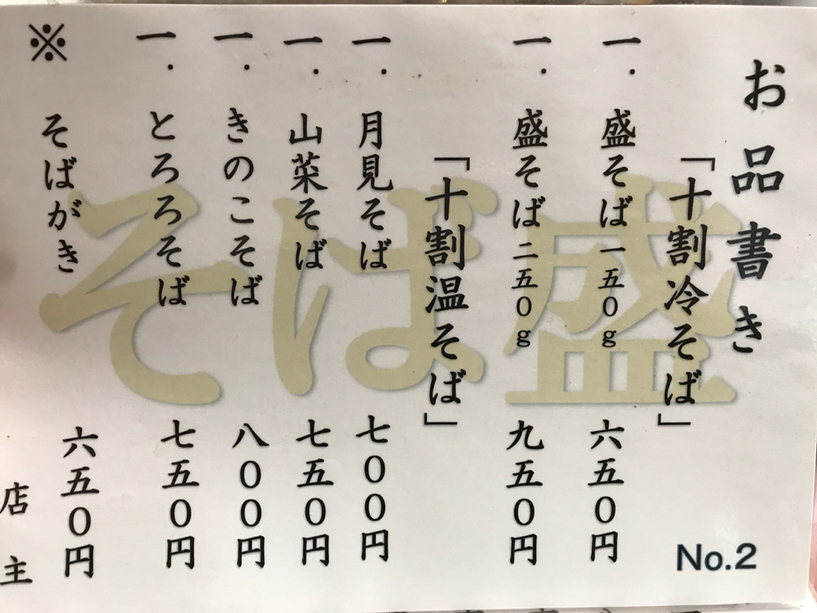 お品書き
「十割冷そば」
一．盛そば一五〇g 六五〇円
一．盛そば二五〇g 九五〇円
「十割温そば」
一．月見そば 七〇〇円
一．山菜そば 七五〇円
一．きのこそば 八〇〇円
一．とろろそば 七五〇円
※ そばがき 六五〇円
店主
No.2
盛
ば
そ